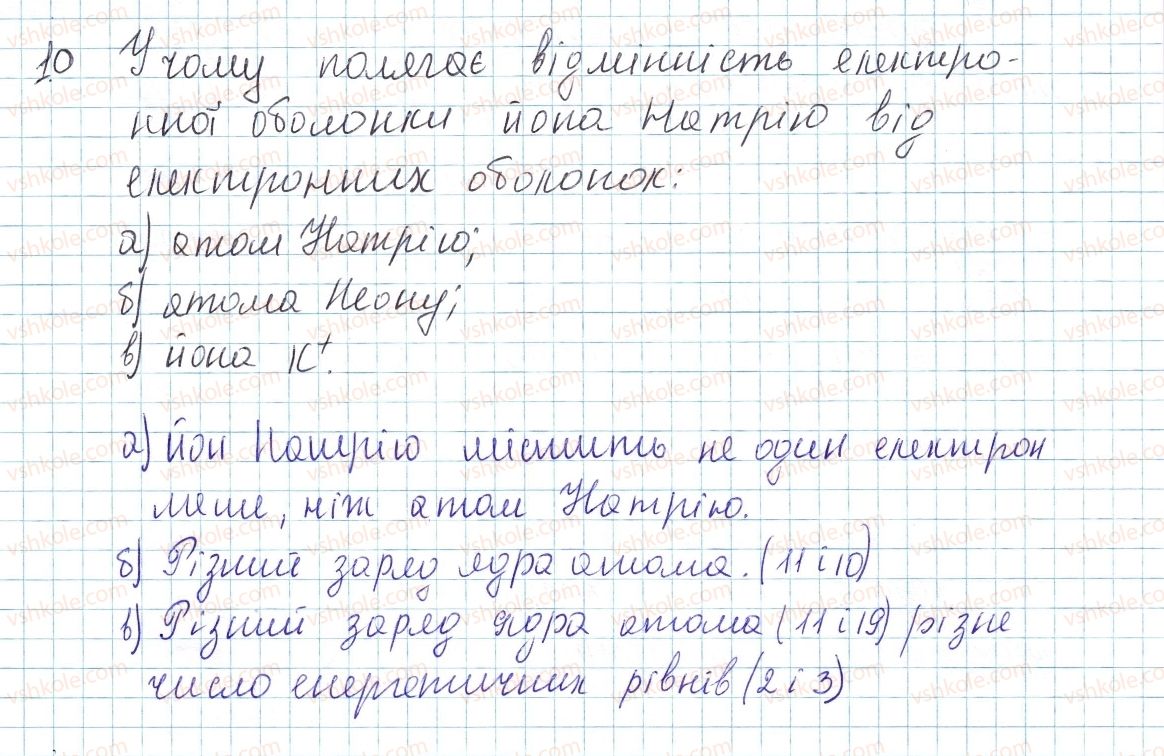 10 У чому полягає відмінність електро-
нної оболонки йона Натрію від
електронних оболонок:
а) атом Натрію;
б) атома Неону;
в) йона К⁺.
а) йон Натрію містить не один електрон
меше, ніж атом Натрію.
б) Різний заряд ядра атома. (11 і 10)
в) Різний заряд ядра атома (11 і 19) різне
число енергетичних рівнів (2 і 3)